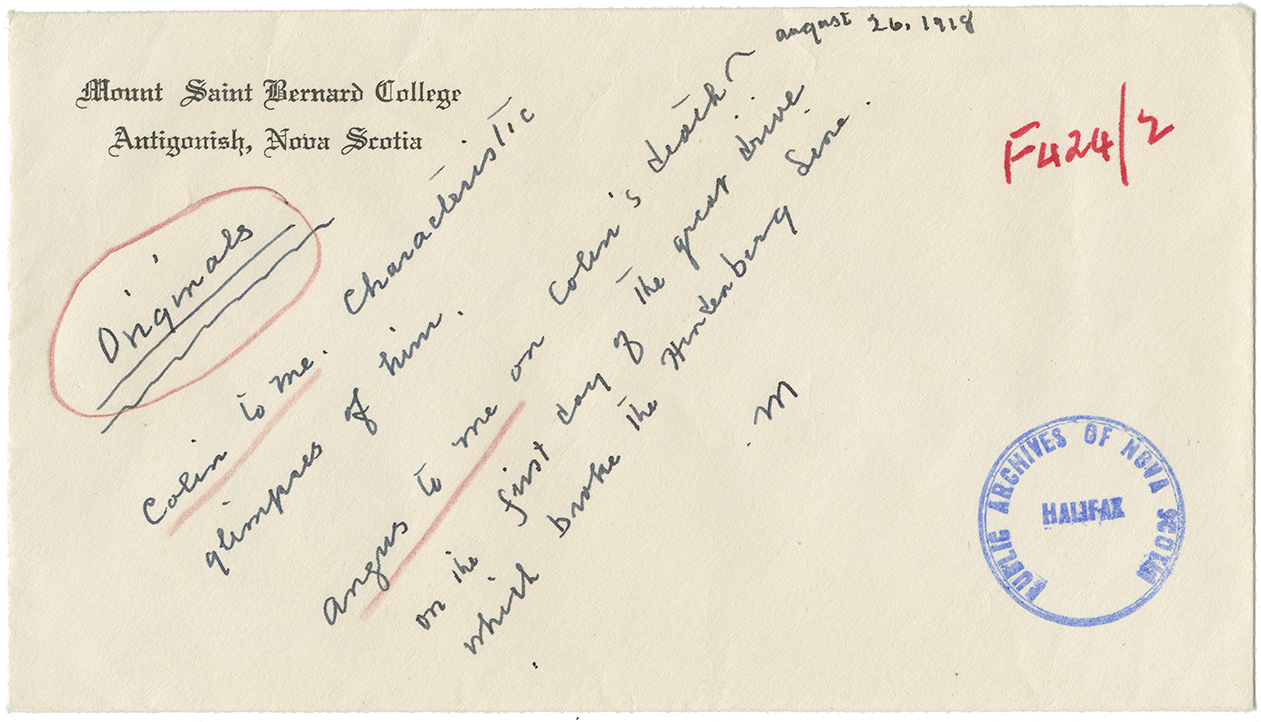 Mount Saint Bernard College
Antigonish, Nova Scotia
F424/2
Originals
Colin to me. Characteristic
glimpses of him.
Angus to me on Colin's death ~ august 26, 1918
on the first day of the great drive
which broke the Hindenberg Line.
M
PUBLIC ARCHIVES OF NOVA SCOTIA
HALIFAX